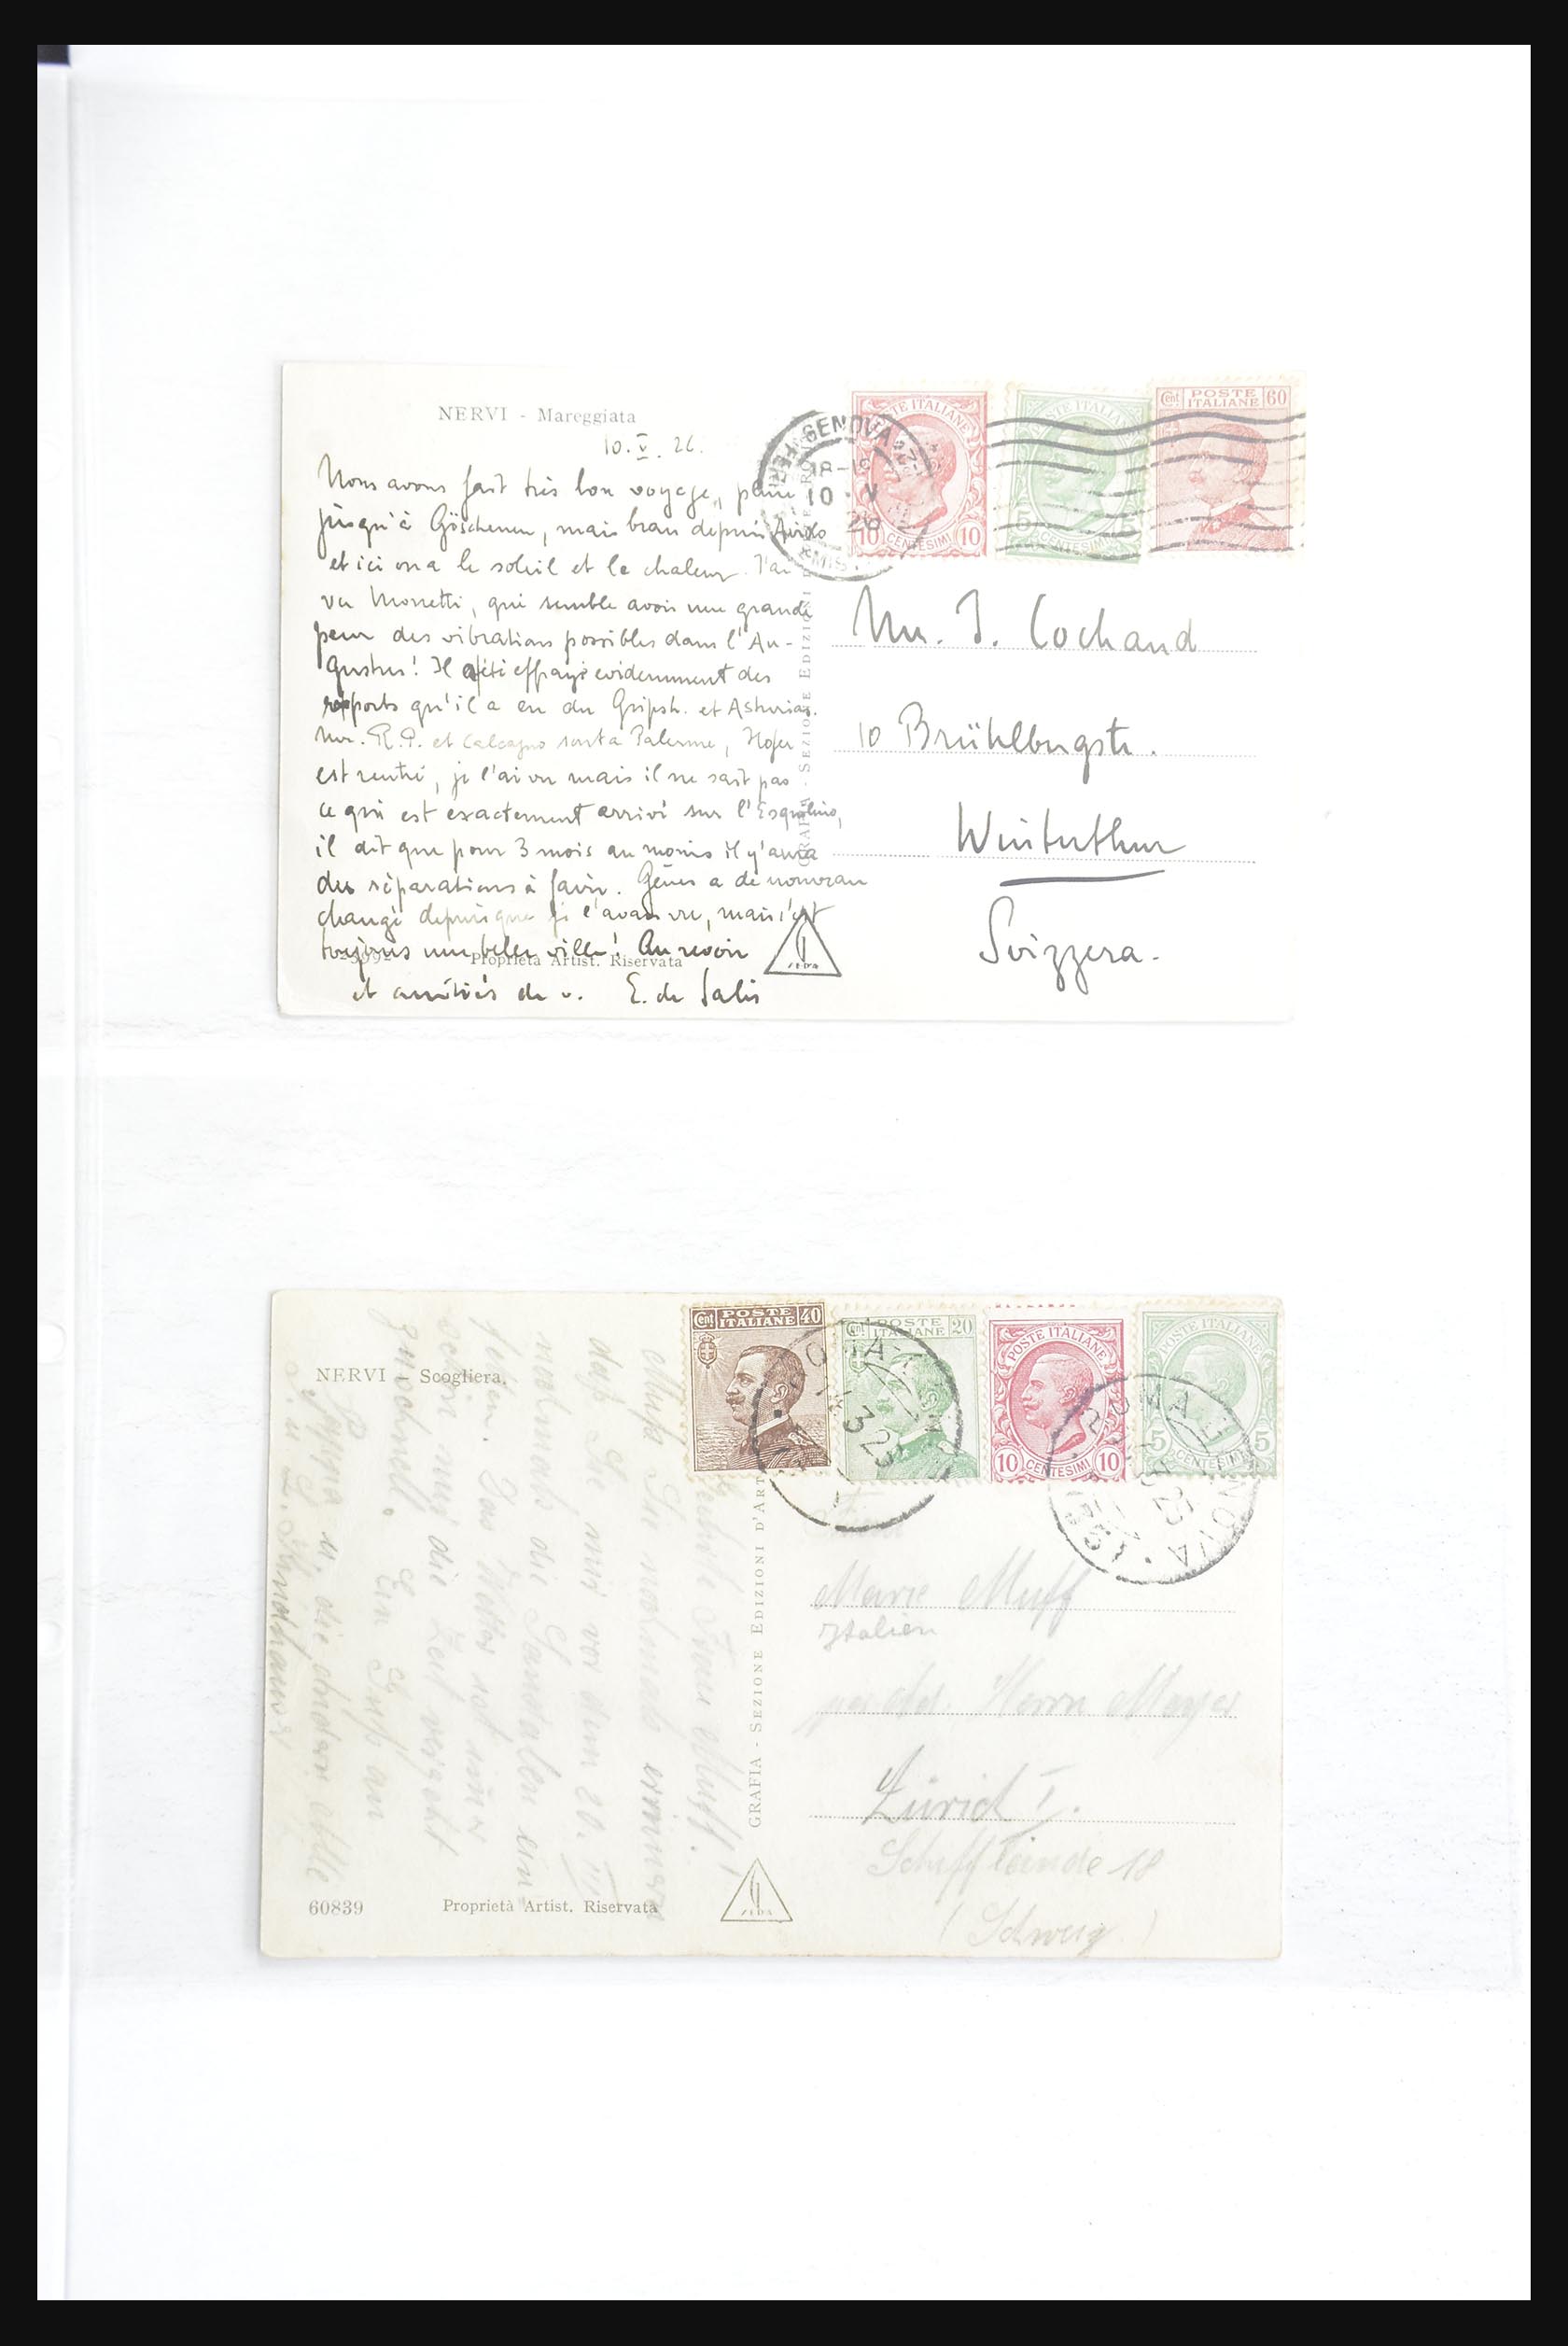 NERVI - Mareggiata
10. V. 26.
Nous avons fait très bon voyage, pluie
jusqu'à Göschenen, mais beau depuis Airolo
et ici on a le soleil et la chaleur. J'ai
vu Monetti, qui semble avoir une grande
peur des vibrations possibles dans l'Au-
gustus! Il a été effrayé evidemment des
rapports qu'il a eu du Gripsh. et Asturias.
Mr. R.P. et Calcagno sont à Palerme, Hofer
est rentré, je l'ai vu mais il ne sait pas
ce qui est exactement arrivé sur l'Esquilino,
il dit que pour 3 mois au moins il y'aura
des réparations à faire. Gênes a de nouveau
changé depuis que je l'avais vu, mais c'est
toujours une belle ville! Au revoir
et amitiés de v. E. de Salis
Proprietà Artist. Riservata
GRAFIA - SEZIONE EDIZIONI
SEDA
GENOVA
18-19
10 · V
26
POSTE ITALIANE
10 CENTESIMI 10
POSTE ITALIANE
5 CENTESIMI 5
Cent POSTE ITALIANE 60
Mr. J. Cochand
10 Brühlbergstr.
Winterthur
Svizzera.
NERVI - Scogliera.
Frau Muff!
Sie nochmals erinnern
daß Sie mir vor dem 20. III
nochmals die Sandalen ein
Das Wetter ist
mir die Zeit vergeht
Ein Gruß an
u. die andern alle
60839
Proprietà Artist. Riservata
GRAFIA - SEZIONE EDIZIONI D'ART
SEDA
Cent POSTE ITALIANE 40
Cent POSTE ITALIANE 20
POSTE ITALIANE
10 CENTESIMI 10
POSTE ITALIANE
5 CENTESIMI 5
Marie Muff
Italien
per Adr. Herrn Meyer
Zürich I.
Schifflände 18
(Schweiz)